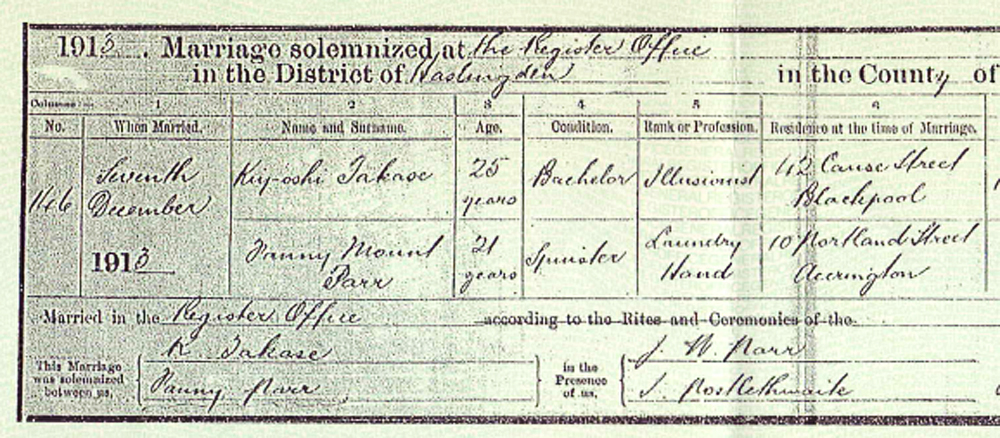 1913. Marriage solemnized at the Register Office
in the District of Haslingden in the County of
Columns:— 1 2 3 4 5 6
No. When Married. Name and Surname. Age. Condition. Rank or Profession. Residence at the time of Marriage.
146 Seventh December 1913 Kiyoshi Takase 25 years Bachelor Illusionist 42 Cause Street Blackpool
Fanny Mount Parr 21 years Spinster Laundry Hand 10 Portland Street Accrington
Married in the Register Office according to the Rites and Ceremonies of the
This Marriage was solemnized between us, K. Takase Fanny Parr in the Presence of us, J. W. Parr J. Postlethwaite